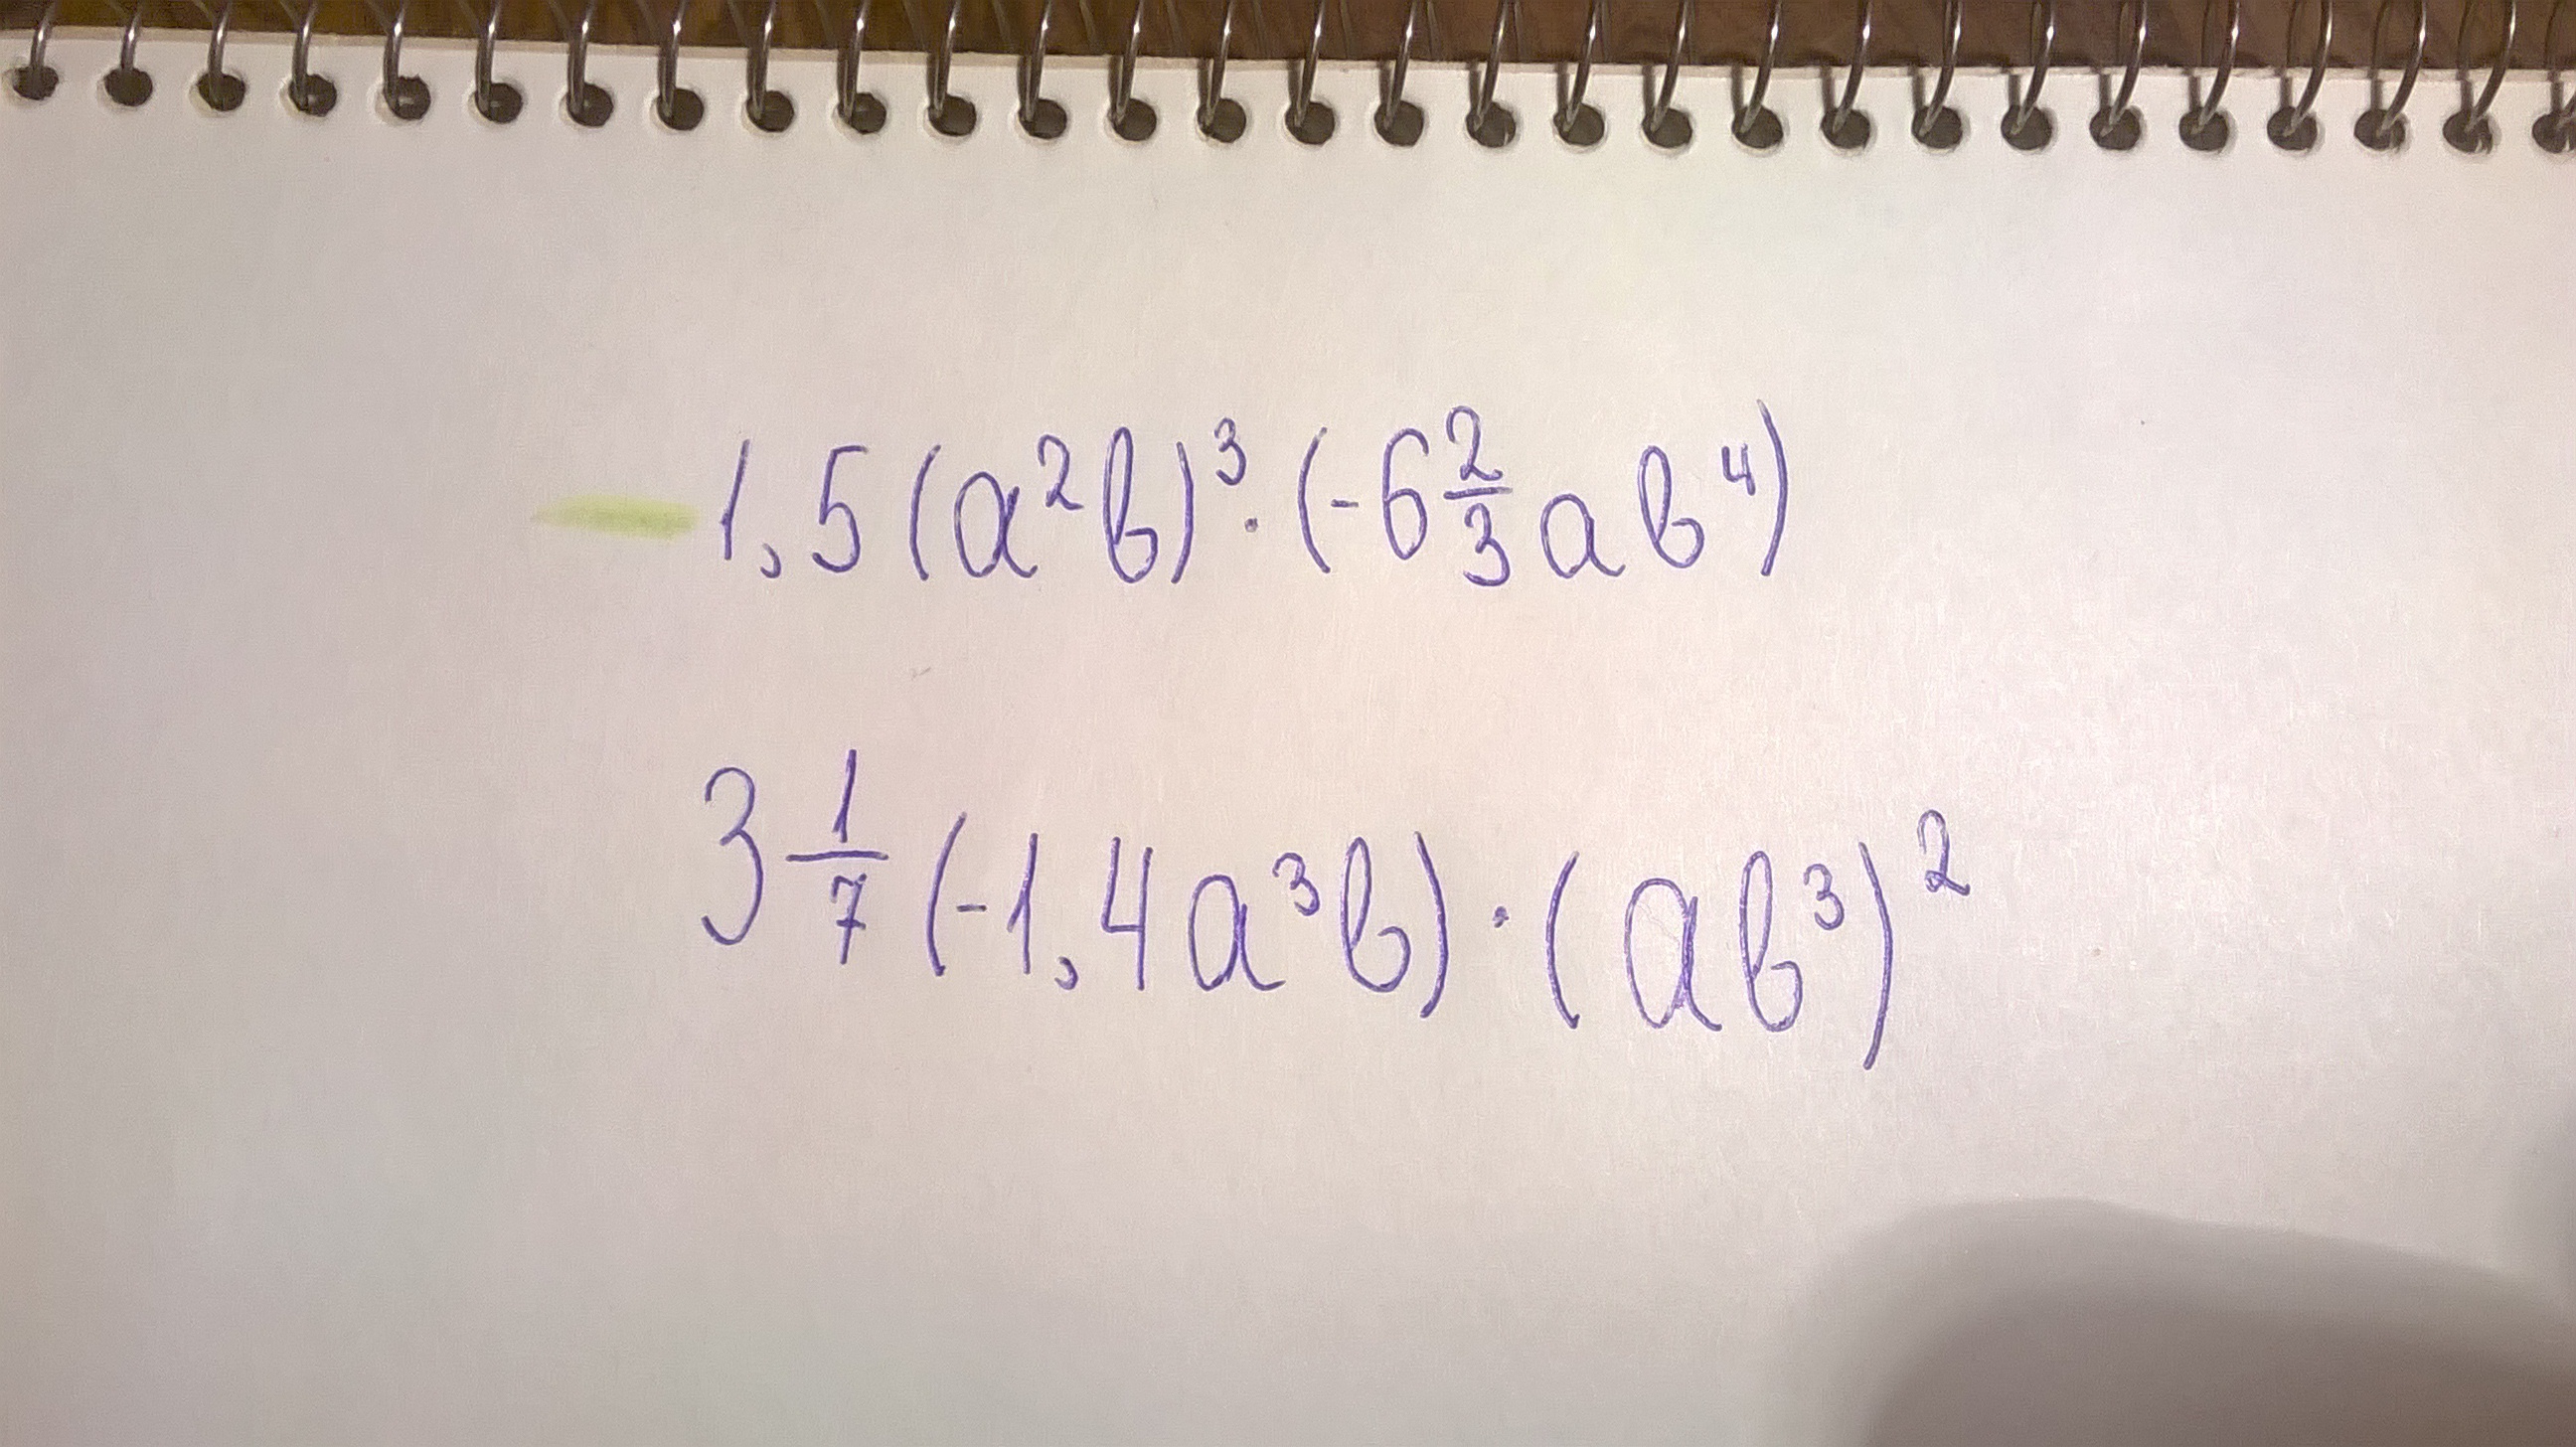 1,5(a²b)³·(-6 2/3 ab⁴)
3 1/7 (-1,4a³b)·(ab³)²